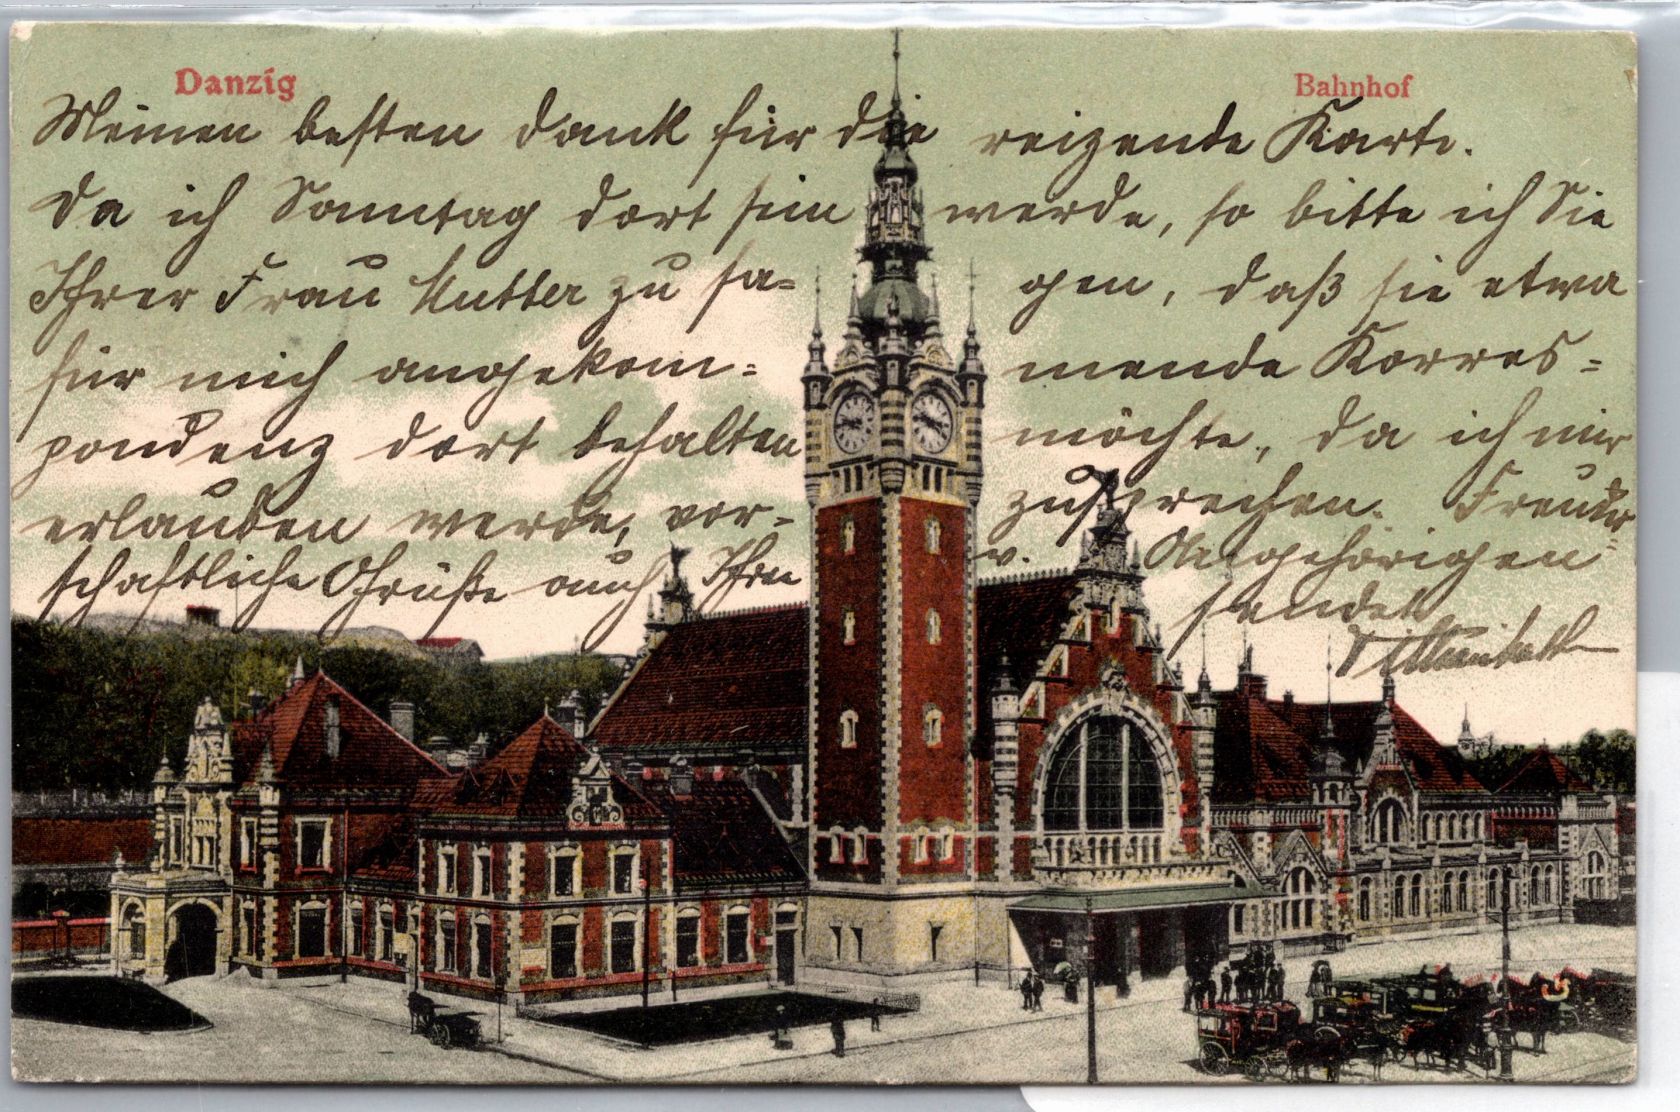 Danzig Bahnhof
Meinen besten Dank für die reizende Karte.
Da ich Sonntag dort sein werde, so bitte ich Sie
Ihrer Frau Mutter zu sa= gen, daß sie etwa
für mich angekom= mende Korres=
pondenz dort behalten möchte, da ich mir
erlauben werde, vor- zusprechen. Freund=
schaftliche Grüße auch Ihren w. Angehörigen
sendet